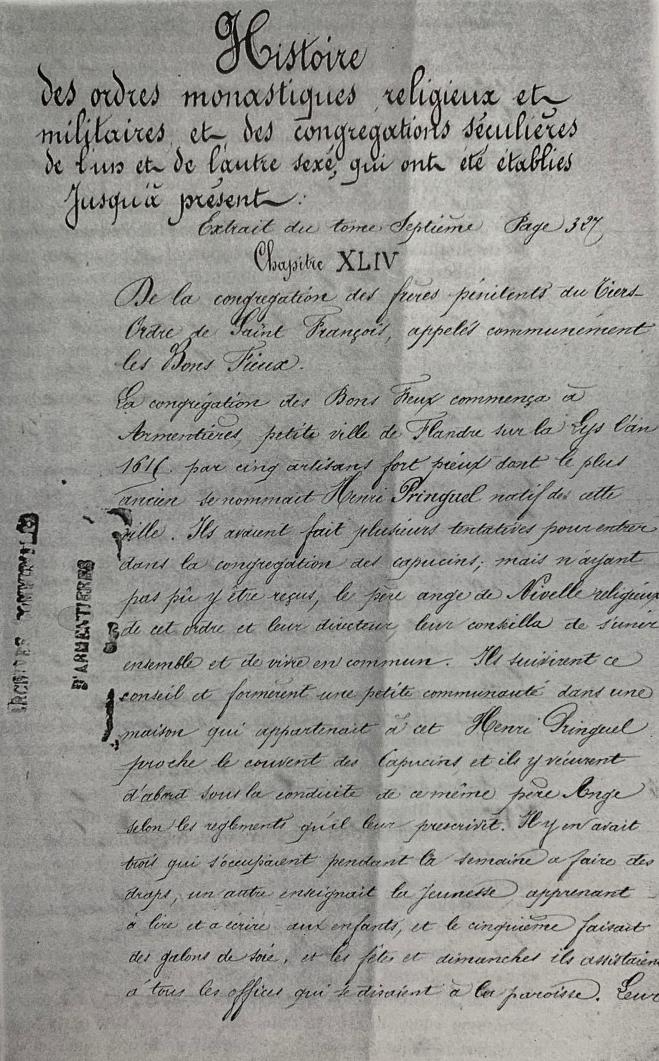 Histoire
des ordres monastiques religieux et
militaires et des congregations séculières
de l'un et de l'autre sexé, qui ont été établies
Jusqu'à présent :
Extrait du tome Septième Page 327
Chapitre XLIV
De la congregation des frères pénitents du Tiers-
Ordre de Saint François, appelés communément
les Bons Fieux.
La congrégation des Bons Fieux commença à
Armentières, petite ville de Flandre sur la Lys l'an
par cinq artisans fort pieux dont le plus
ancien se nommait Henri Pringuel natif de cette
ville. Ils avaient fait plusieurs tentatives pour entrer
dans la congregation des capucins; mais n'ayant
pas pû y être reçus, le père ange de Nivelle religieux
de cet ordre et leur directeur leur conseilla de s'unir
ensemble et de vivre en commun. Ils suivirent ce
conseil et formèrent une petite communauté dans une
maison qui appartenait à cet Henri Pringuel
proche le couvent des Capucins et ils y vécurent
d'abord sous la conduite de ce même père Ange
selon les reglements qu'il leur prescrivit. Il y en avait
trois qui s'occupaient pendant la semaine a faire des
draps, un autre enseignait la Jeunesse apprenant
à lire et a écrire aux enfants, et le cinquième faisait
des galons de soie, et les fêtes et dimanches ils assistaient
à tous les offices qui se disaient à la paroisse. Leur
ARCHIVES
D'ARMENTIERES